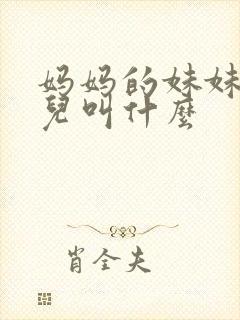 妈妈的妹妹
兒叫什麼
肖全夫